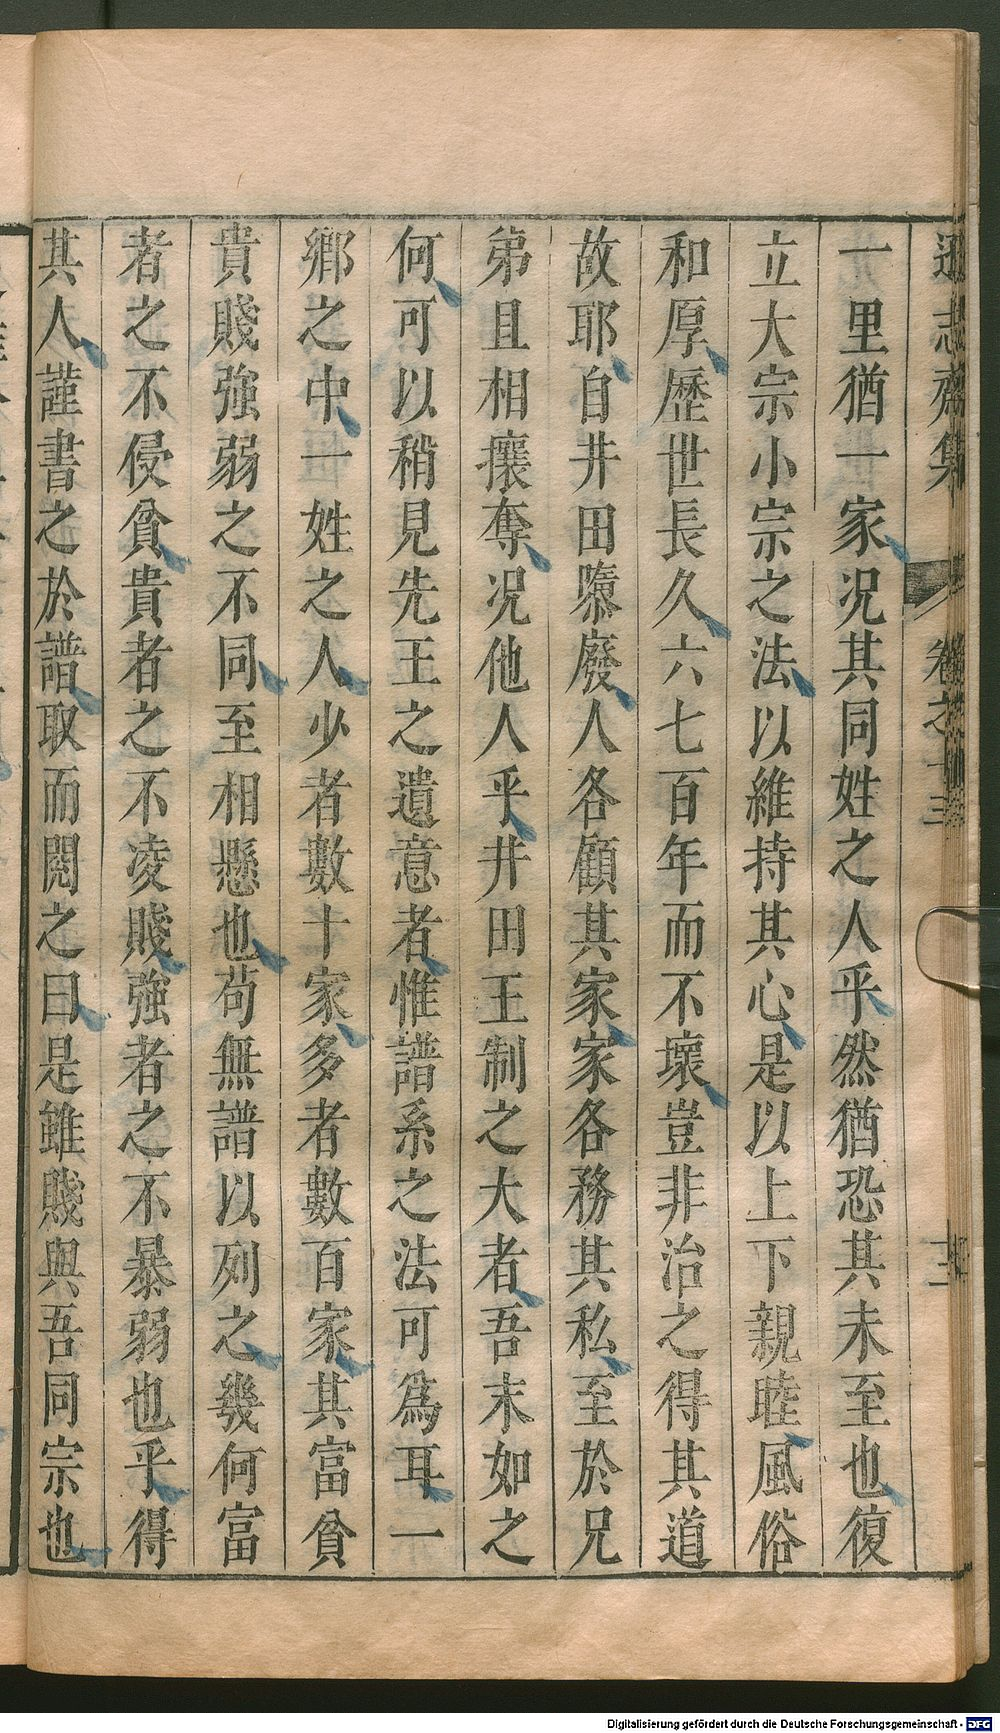 遜志齋集 卷之十三
一里猶一家况其同姓之人乎然猶恐其未至也復
立大宗小宗之法以維持其心是以上下親睦風俗
和厚歷世長久六七百年而不壞豈非治之得其道
故耶自井田隳廢人各顧其家家各務其私至於兄
弟且相攘奪况他人乎井田王制之大者吾末如之
何可以稍見先王之遺意者惟譜系之法可為耳一
鄉之中一姓之人少者數十家多者數百家其富貧
貴賤強弱之不同至相懸也苟無譜以列之幾何富
者之不侵貧貴者之不凌賤強者之不暴弱也乎得
其人謹書之於譜取而閱之曰是雖賤與吾同宗也
Digitalisierung gefördert durch die Deutsche Forschungsgemeinschaft - DFG